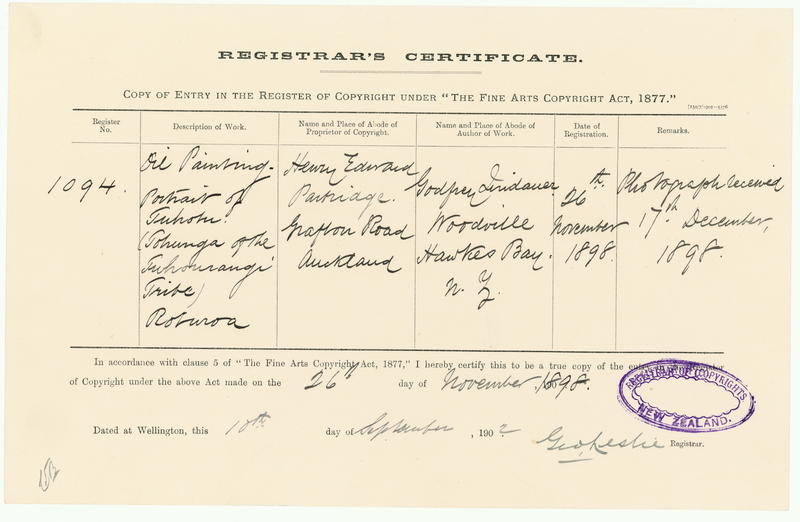 REGISTRAR'S CERTIFICATE.
COPY OF ENTRY IN THE REGISTER OF COPYRIGHT UNDER "THE FINE ARTS COPYRIGHT ACT, 1877."
Register No.
Description of Work.
Name and Place of Abode of Proprietor of Copyright.
Name and Place of Abode of Author of Work.
Date of Registration.
Remarks.
1094.
Oil Painting.
Portrait of
Tuhotu.
(Tohunga of the
Tuhourangi
Tribe)
Rotorua
Henry Edward
Partridge.
Grafton Road
Auckland
Godfrey Lindauer
Woodville
Hawkes Bay.
N. Z.
26th
November
1898.
Photograph received
17th December,
1898.
In accordance with clause 5 of "The Fine Arts Copyright Act, 1877," I hereby certify this to be a true copy of the entry in the Register
of Copyright under the above Act made on the 26th day of November, 1898.
REGISTRAR OF COPYRIGHTS
NEW ZEALAND.
Dated at Wellington, this 10th day of September, 1902
Geo Leslie Registrar.